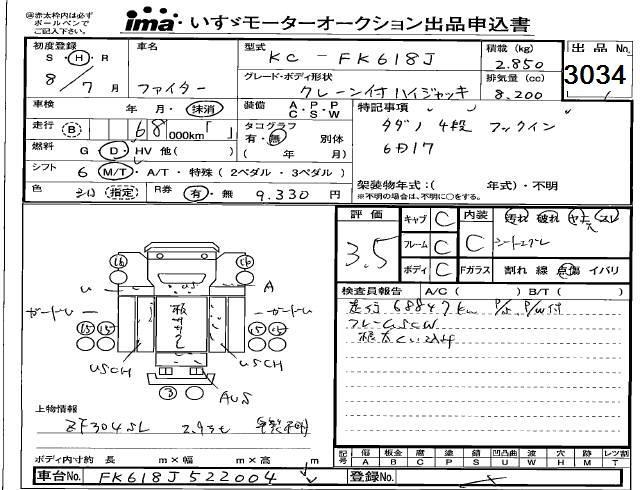 ※赤太枠内は必ず
ボールペンで
ご記入下さい。
ima いすゞモーターオークション出品申込書
初度登録
S・H・R
8/7月
車名
ファイター
型式
KC-FK618J
積載(kg)
2.850
出品No.
3034
グレード・ボディ形状
クレーン付ハイジャッキ
排気量(cc)
8.200
車検
年 月・抹消
装備
A・P・P
C・S・W
特記事項
タダノ 4段 フックイン
走行
B
68000km「 」
タコグラフ
有・無 別体
( 年 月)
燃料
G・D・HV 他( )
シフト
6 M/T・A/T・特殊(2ペダル・3ペダル)
架装物年式:( 年式)・不明
※架装物の場合は、不明に○をする。
色
シロ 指定
R券
有・無 9.330円
評価
3.5
キャブ C
フレーム C
ボディ C
内装
C
汚れ 破れ ヤニ スレ
Fガラス 割れ 線 点傷 イバリ
検査員報告 A/C( ) B/T( )
走行 68847km P/S P/W付
フレームSCW
16 16
U A
ガードU ガードU
15 15 15 15
USCH USCH
AUS
上物情報
ZF304SL 2.93t
ボディ内寸約 長 m×幅 m×高 m
記号
傷 A
板金 B
腐 C
塗 P
錆 S
凹 U
波 W
穴 H
跡 M
レツ割 T
車台No. FK618J522004
登録No.